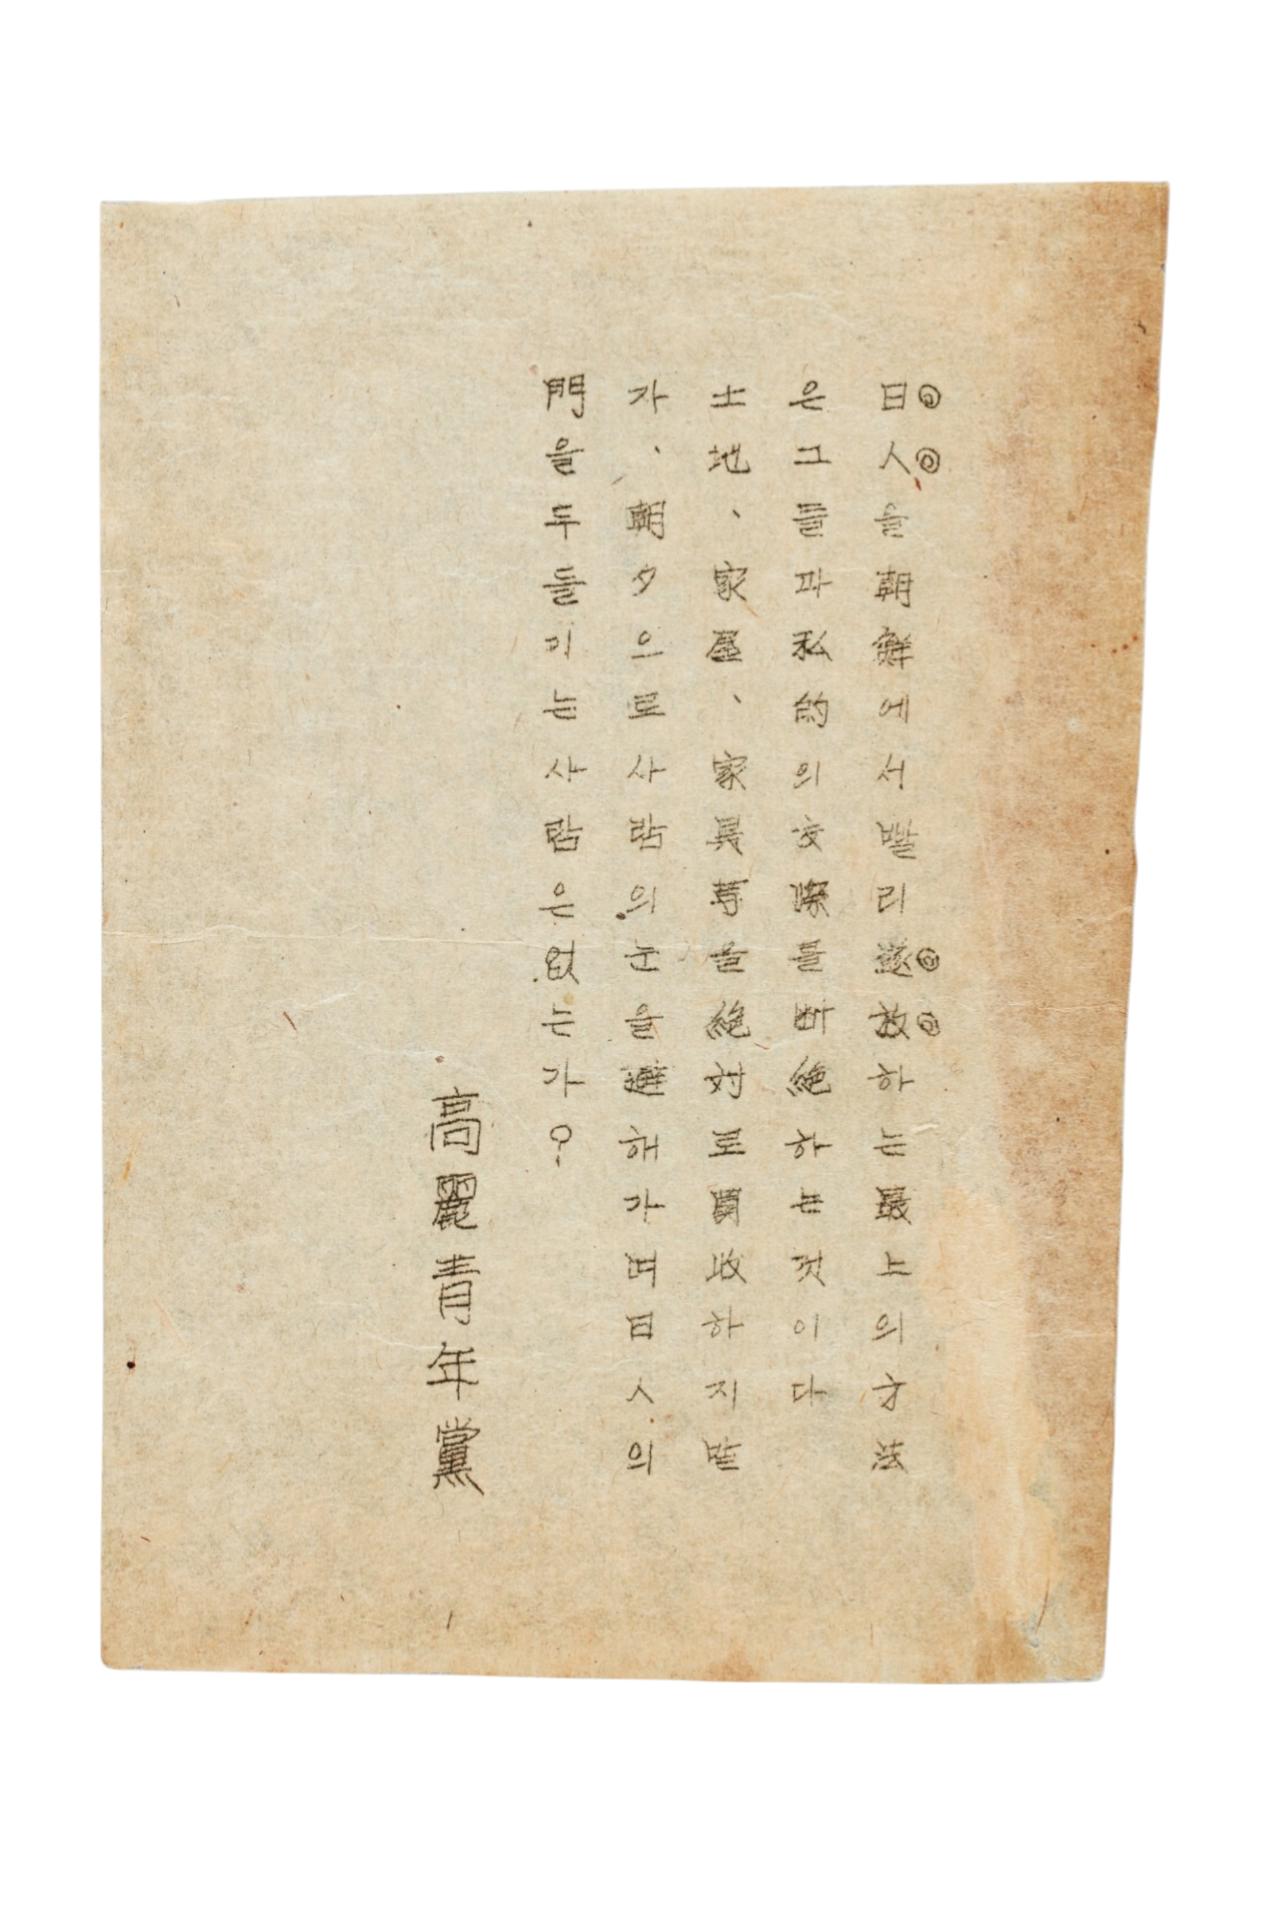 日人을朝鮮에서빨리逐放하는最上의方法
은그들과私的의交際를断絶하는것이다
土地、家屋、家具等을絶対로買收하지말
가、朝夕으로사람의눈을避해가며日人의
門을두들기는사람은없는가?
高麗青年黨